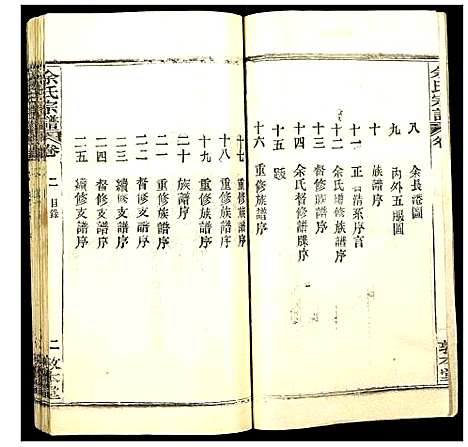 余氏宗譜
卷
八 余長 圖
九 內外五服圖
十 族譜序
十一 正 清系序言
十二 余氏 修族譜序
十三 督修族譜序
十四 余氏督修譜牒序
十五 跋
十六 重修族譜序
十七 重修族譜序
十八 重修族譜序
十九 重修族譜序
二十 族譜序
二一 重修族譜序
二二 督修支譜序
二三 續修支譜序
二四 督修支譜序
二五 續修支譜序
余氏宗譜
卷
目錄
二
敦本堂